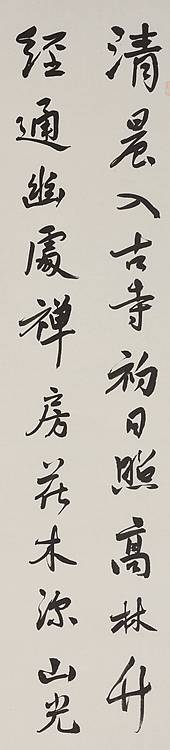 清晨入古寺初日照高林竹
經通幽處禪房花木深山光